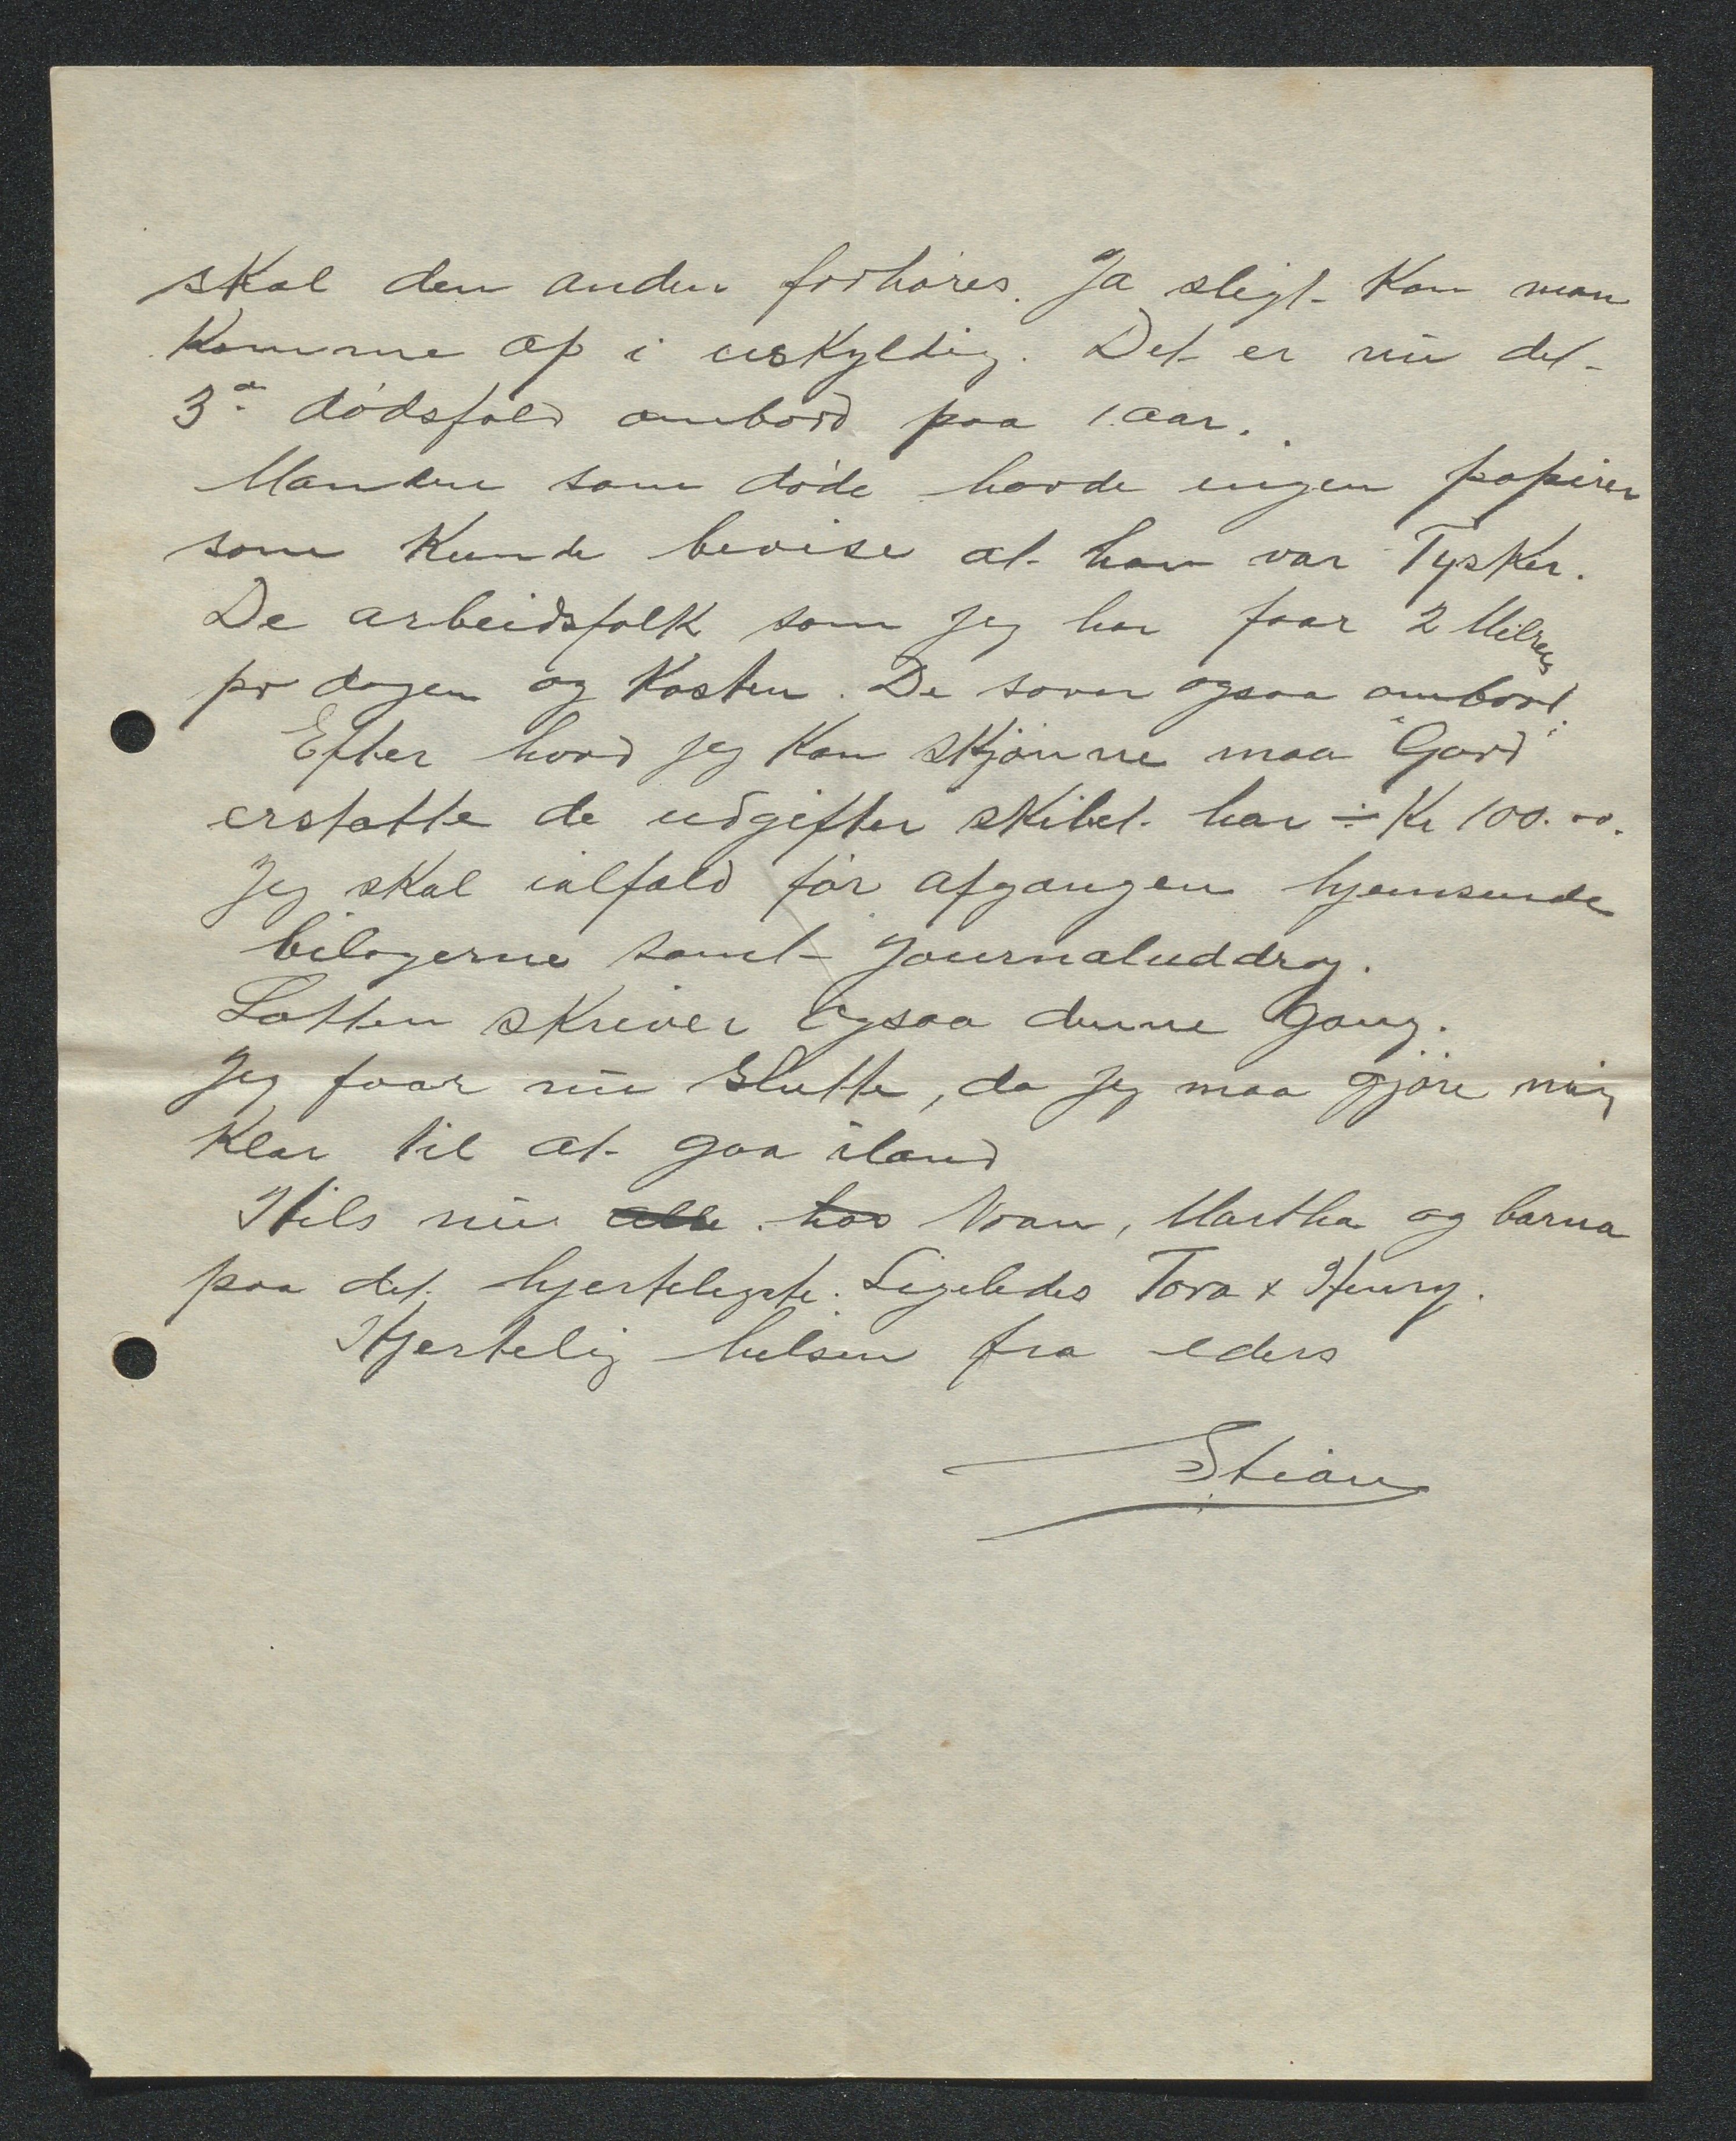 skal den anden forhøres. Ja sligt kan man
komme op i uskyldig. Det er nu det
3die dødsfald ombord paa 1 aar.
Manden som døde havde ingen papirer
som kunde bevise at han var Tysker.
De arbeidsfolk som jeg har faar 2 Milreis
pr dagen og kosten. De sover ogsaa ombord.
Efter hvad jeg kan skjønne maa "Gard"
erstatte de udgifter skibet har ÷ Kr 100.00.
Jeg skal ialfald før afgangen hjemsende
bilagerne samt journaluddrag.
Lotten skriver ogsaa denne gang.
Jeg faar nu slutte, da jeg maa gjøre mig
klar til at gaa iland
Hils nu alle hos Moan, Martha og barna
paa det hjerteligste. Ligeledes Tora & Henry.
Hjertelig hilsen fra eders
Stian